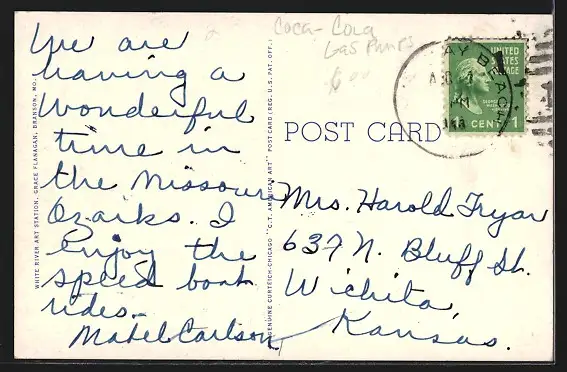 We are
having a
wonderful
time in
the Missouri
Ozarks. I
enjoy the
speed boat
rides.
Mabel Carlson
WHITE RIVER ART STATION, GRACE FLANAGAN, BRANSON, MO.
GENUINE CURTEICH-CHICAGO "C.T. AMERICAN ART" POST CARD (REG. U.S. PAT. OFF.)
Coca-Cola
Gas Pumps
6 00
POST CARD
AY BEACH
UNITED
STATES
POSTAGE
1 CENT 1
Mrs. Harold Fryar
637 N. Bluff St.
Wichita,
Kansas.